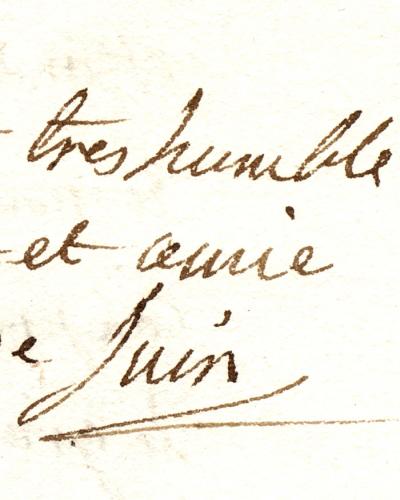 tres humble
et amie
e Juin